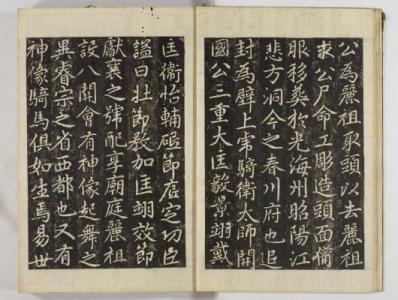 公為麗祖取頭以去麗祖
求公尸命工彫造頭面備
服移葬於光海州昭陽江
悲方洞今之春川府也追
封為壁上虎騎衛太師開
國公三重大匡毅景翊戴
匡衛怡輔砥節底定功臣
謚曰壯節教加匡翊效節
獻襄之號配享廟庭麗祖
設八關會有神像起舞之
異睿宗之省西都也又有
神像騎馬俱如生焉易世